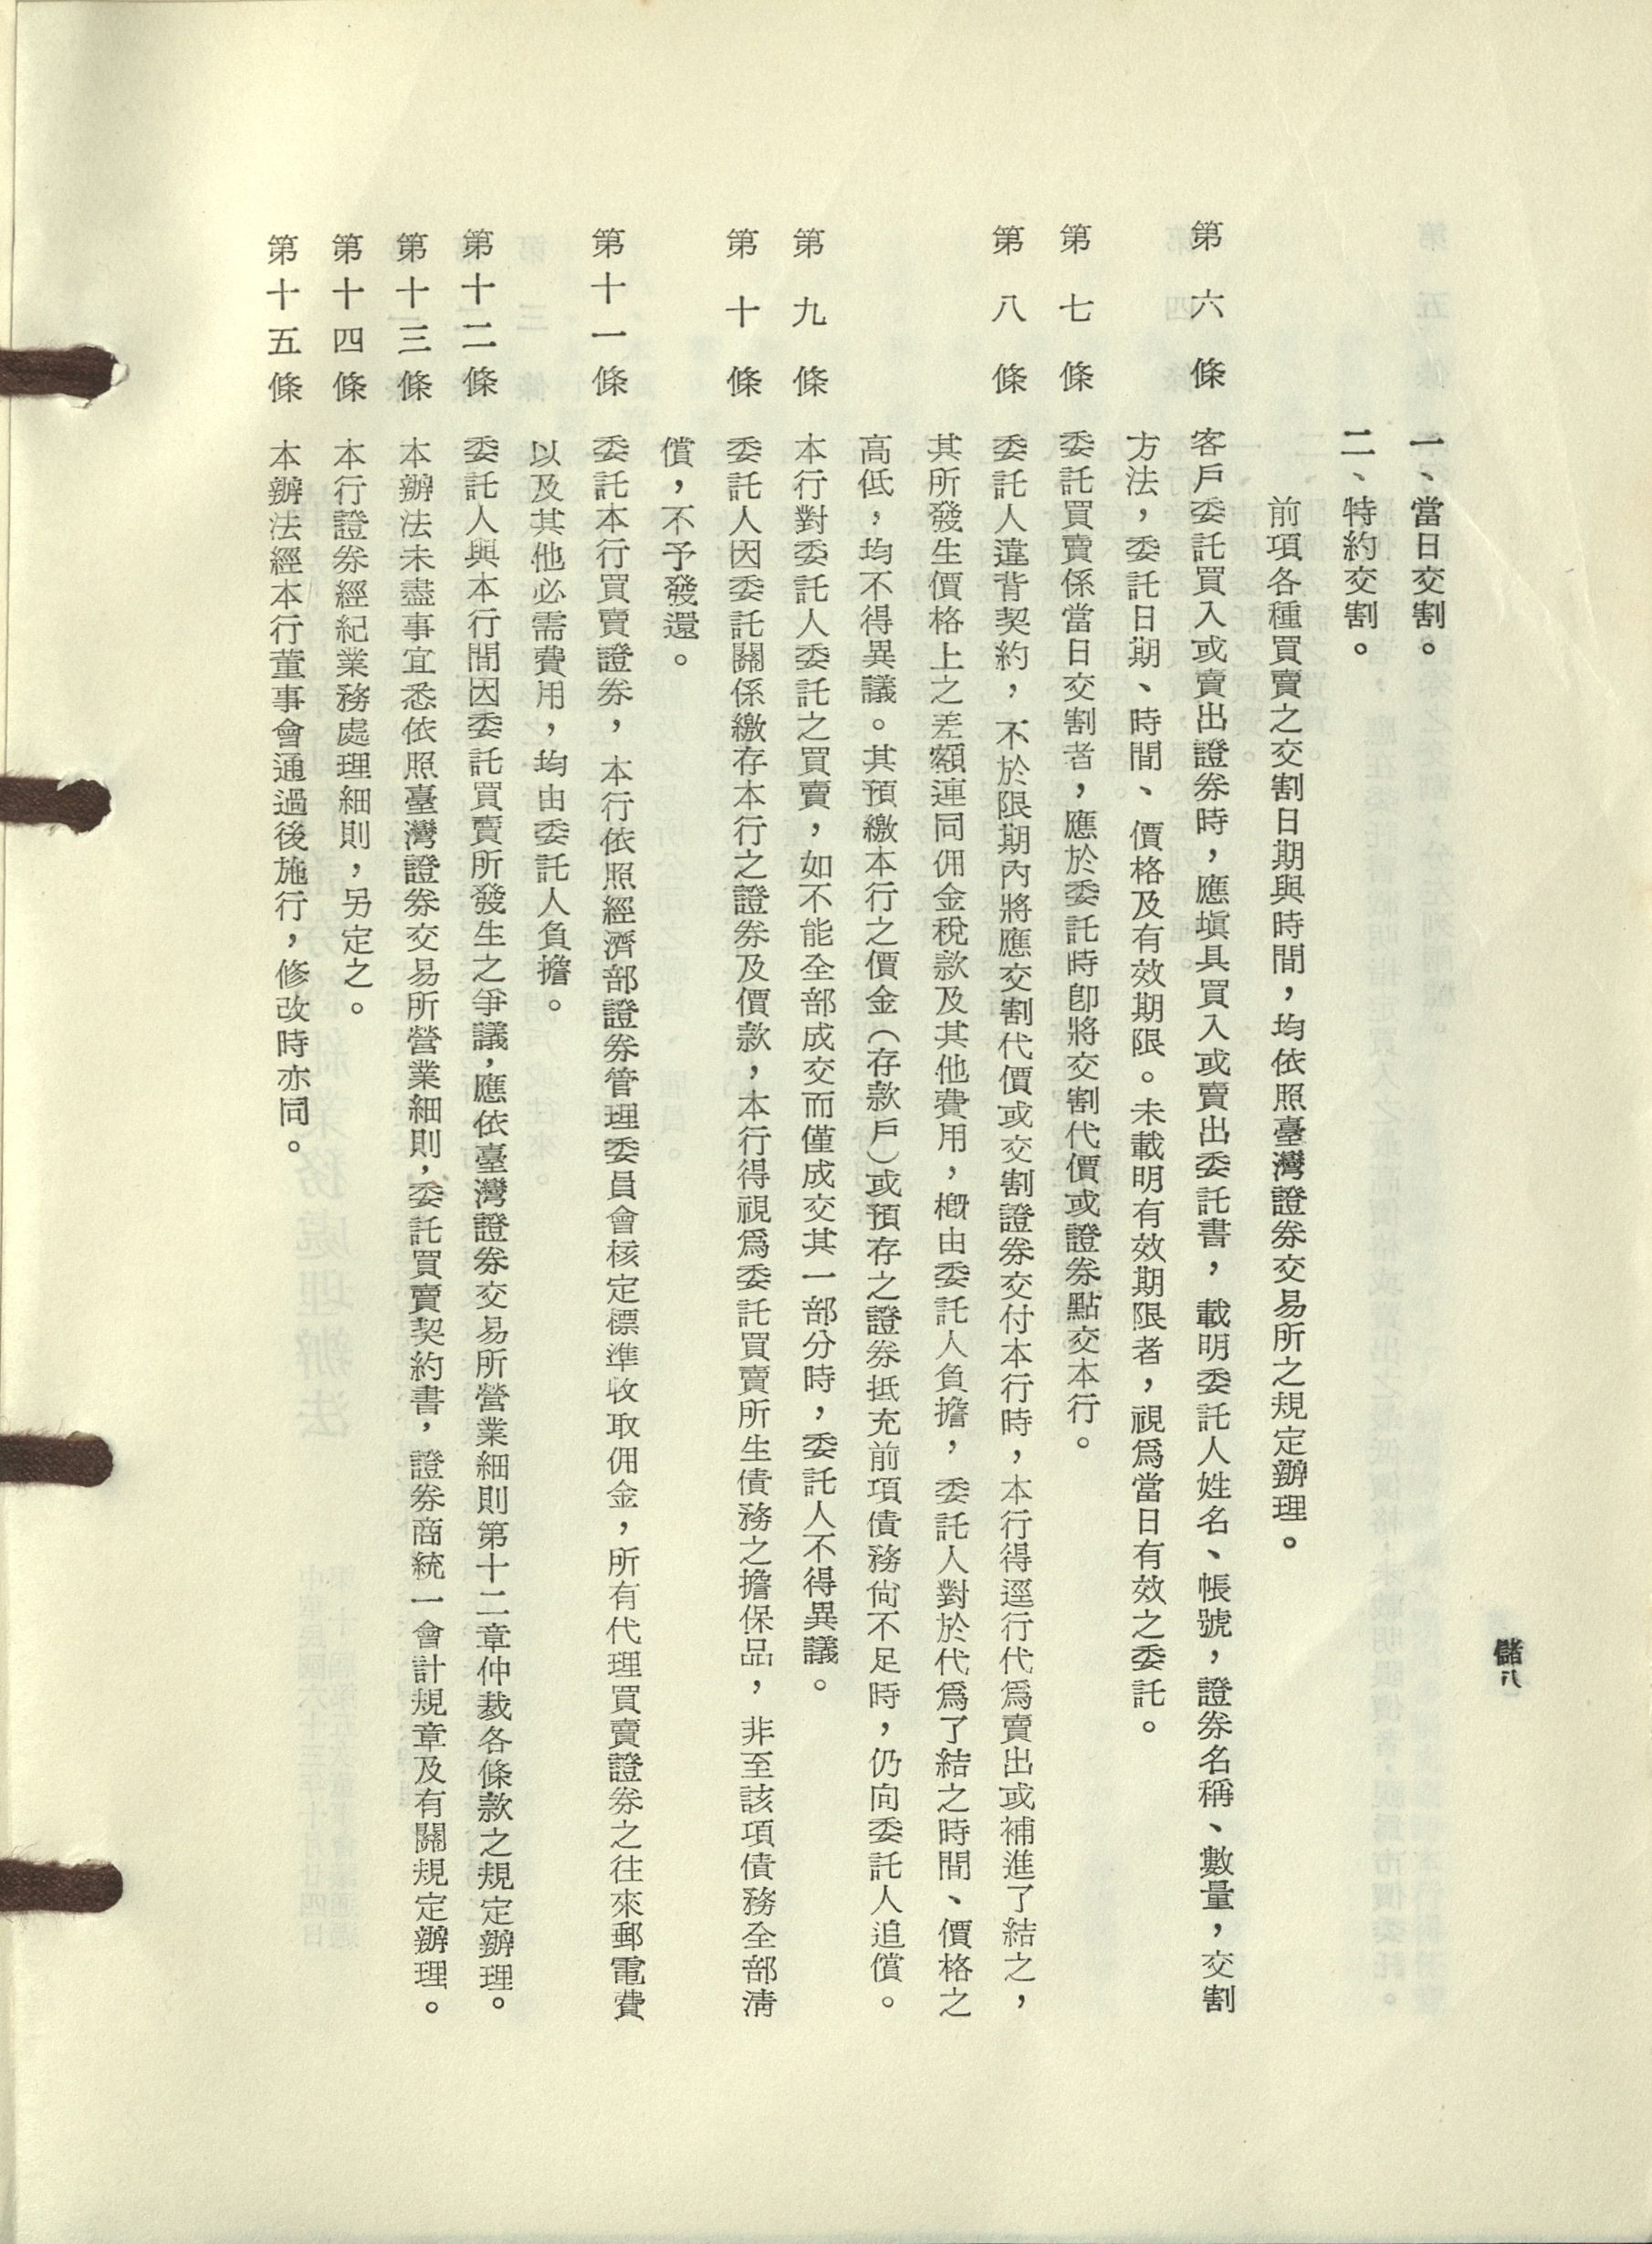 儲八
一、當日交割。
二、特約交割。
前項各種買賣之交割日期與時間，均依照臺灣證券交易所之規定辦理。
第六條　客戶委託買入或賣出證券時，應塡具買入或賣出委託書，載明委託人姓名、帳號，證券名稱、數量，交割
方法，委託日期、時間、價格及有效期限。未載明有效期限者，視爲當日有效之委託。
第七條　委託買賣係當日交割者，應於委託時卽將交割代價或證券點交本行。
第八條　委託人違背契約，不於限期內將應交割代價或交割證券交付本行時，本行得逕行代爲賣出或補進了結之，
其所發生價格上之差額連同佣金稅款及其他費用，槪由委託人負擔，委託人對於代爲了結之時間、價格之
高低，均不得異議。其預繳本行之價金（存款戶）或預存之證券抵充前項債務尙不足時，仍向委託人追償。
第九條　本行對委託人委託之買賣，如不能全部成交而僅成交其一部分時，委託人不得異議。
第十條　委託人因委託關係繳存本行之證券及價款，本行得視爲委託買賣所生債務之擔保品，非至該項債務全部淸
償，不予發還。
第十一條　委託本行買賣證券，本行依照經濟部證券管理委員會核定標準收取佣金，所有代理買賣證券之往來郵電費
以及其他必需費用，均由委託人負擔。
第十二條　委託人與本行間因委託買賣所發生之爭議，應依臺灣證券交易所營業細則第十二章仲裁各條款之規定辦理。
第十三條　本辦法未盡事宜悉依照臺灣證券交易所營業細則，委託買賣契約書，證券商統一會計規章及有關規定辦理。
第十四條　本行證券經紀業務處理細則，另定之。
第十五條　本辦法經本行董事會通過後施行，修改時亦同。